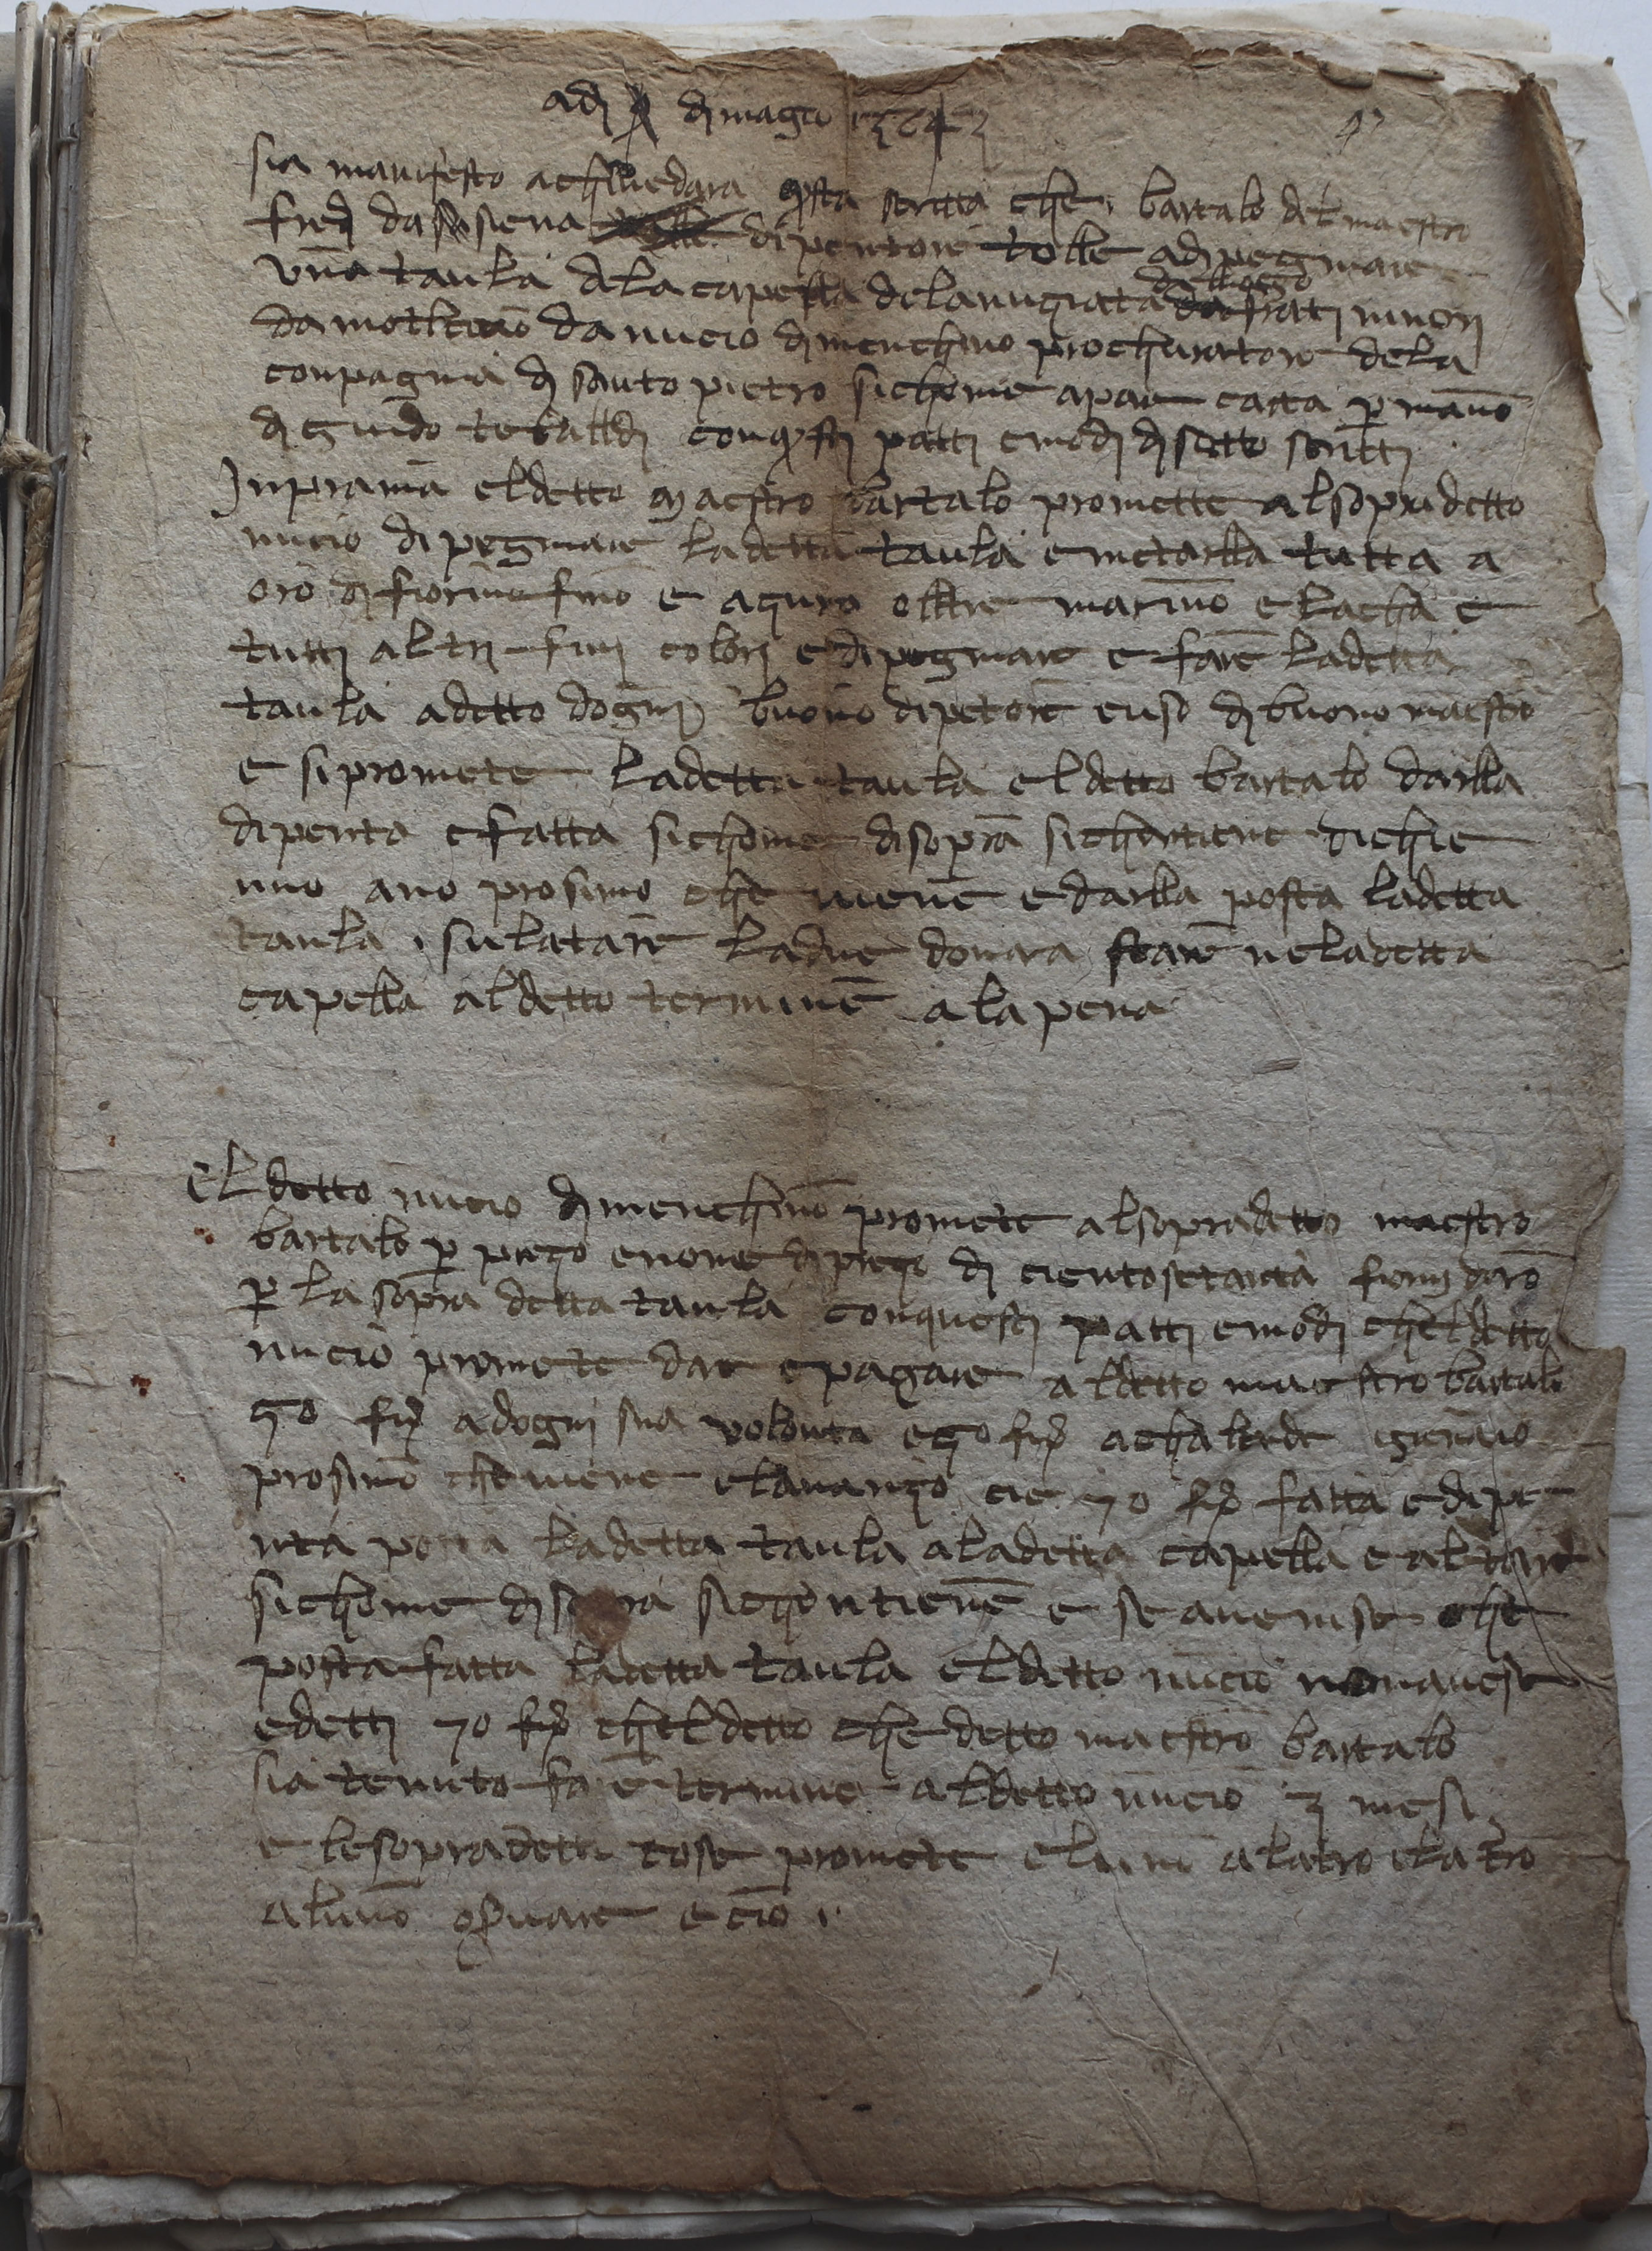 adj di magio
sia manifesto a chi vedara questa scritta che bartalo del maestro
fredj da siena dipentore tolle a dipegniare
una taula a la capella de la nuziata dellogo frati minori
da da nucio di menchino prochuratore dela
conpagnia di santo pietro sichome apare carta per mano
di guido tebalddj con questi patti e modj di sotto scritti
Inprima el detto maestro bartalo promette al sopradetto
nucio dipegniare la detta taula e metarlla tutta a
oro di fiorino fino e açuro olltre marino e lacha e
tutti altri fini colori e dipegniare e fare la detta
taula a detto dogni buono dipetore e uso di buono maestro
e si promete la detta taula el detto bartalo darlla
dipenta e fatta sichome di sopra si chontiene
uno ano prosimo che viene e darlla posta la detta
taula su latare ladue dovara stare nela detta
capella al detto termine a la pena
El detto nucio di menchino promete al sopradetto maestro
bartalo per preço e nome di preço di ciento setanta fiorini doro
per la sopra detta taula con questi patti e modi chel detto
nucio promete dare e pagare al detto maestro bartalo
50 fio adogni sua volonta e 50 fio a chalende gienaio
prosimo che viene e lavanço cie 70 fio fatta e dipe
nta posta la detta taula a la detta capella e altare
sichome di sopra si chontiene e se avenise che
posta fatta la detta taula el detto nucio non avese
e detti 70 fio chel detto che detto maestro bartalo
sia tenuto fare termine al detto nucio 3 mesi
e le sopradette cose promete eluno alatro elatro
aluno oservare e cio